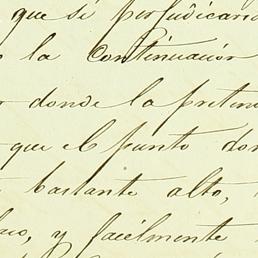 que si perjudicaria
la continuacion
donde la preten
que el punto don
bastante alto,
y facilmente